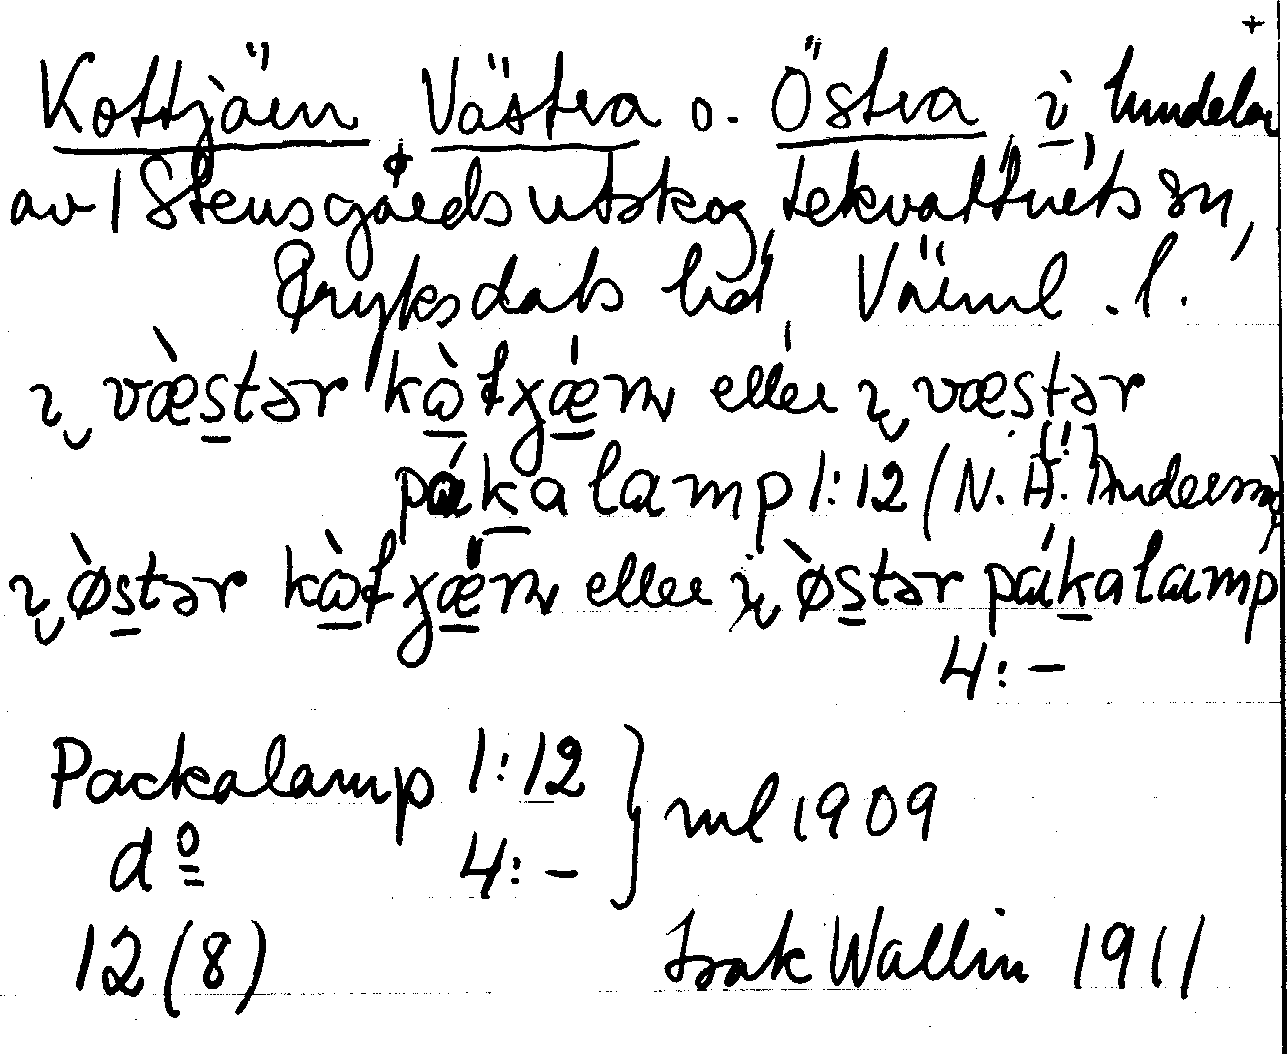 +
Kottjärn Västra o. Östra i hundelar
av 1 Stensgårds utskog, Lekvattnets sn,
Fryksdals hd Värml. l.
ɩ væstər kòtχæ̀ɳ eller ɩ væstər
pákalamp 1:12 (N. H. Anderson)
ɩ østər kòtχæ̀ɳ eller ɩ østər pákalamp
4:-
Packalamp 1:12 } ml 1909
do 4:-
12 (8) Isak Wallin 1911